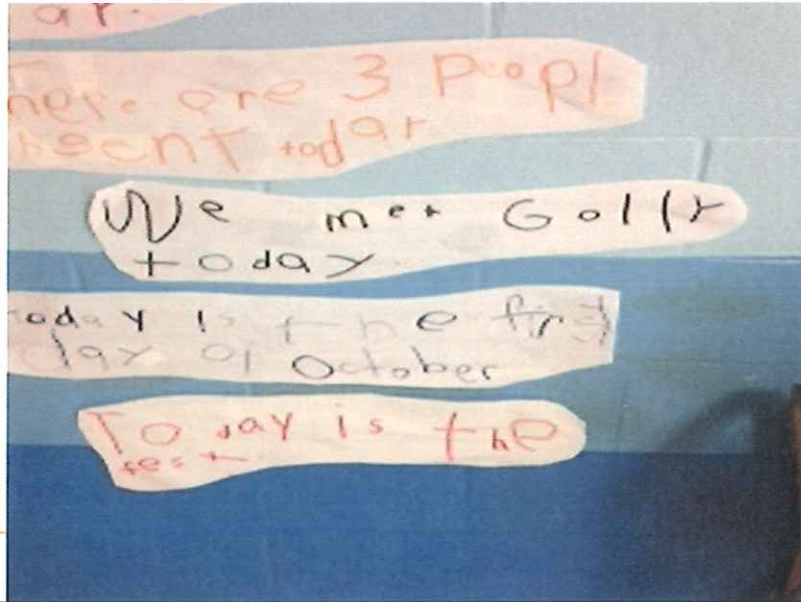 ar.
There are 3 Peopl
hecnt todar
We met Golly
today.
oday is the first
day of October
Today is the
test